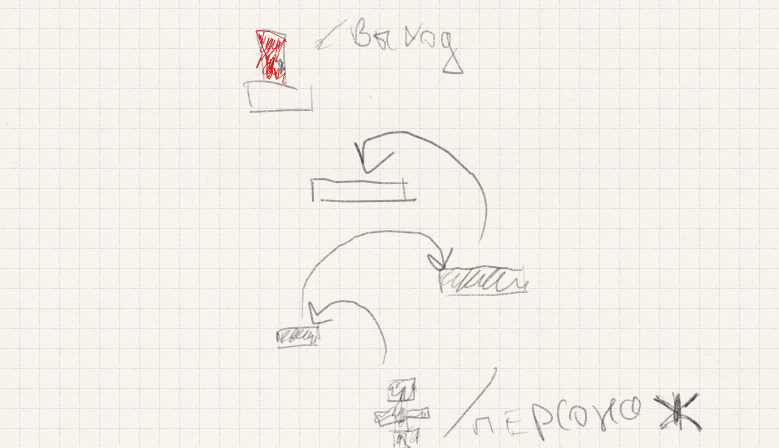 Выход
персонаж